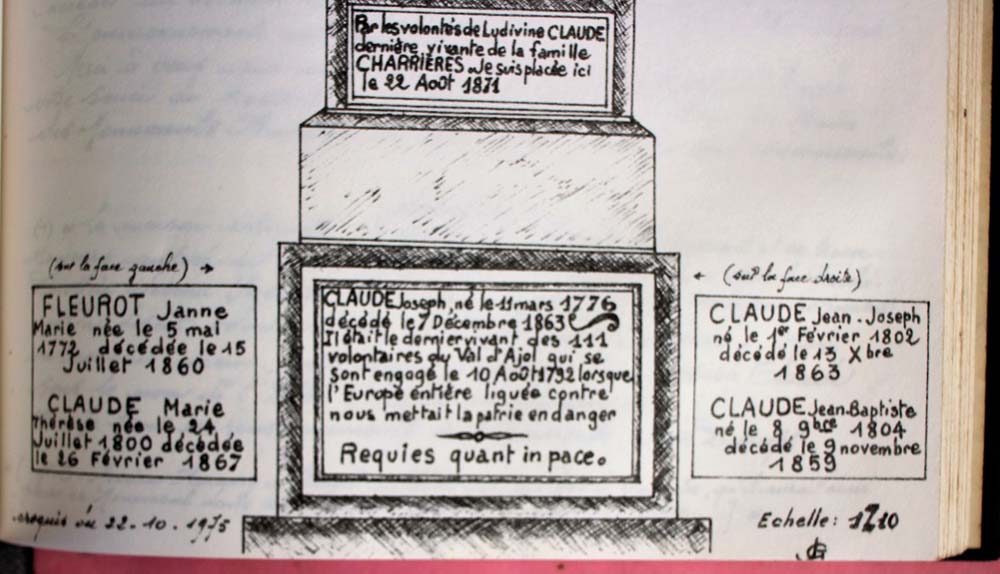 Par les volontés de Ludivine CLAUDE
dernière vivante de la famille
CHARRIÈRES. Je suis placée ici
le 22 Août 1871
(sur la face gauche) →
FLEUROT Janne
Marie née le 5 mai
1772 décédée le 15
Juillet 1860
CLAUDE Marie
Thérèse née le 24
Juillet 1800 décédée
le 26 Février 1867
CLAUDE Joseph, né le 11 mars 1776
décédé le 7 Décembre 1863
Il était le dernier vivant des 111
volontaires du Val d'Ajol qui se
sont engagé le 10 Août 1792 lorsque
l'Europe entière liguée contre
nous mettait la patrie en danger
Requies quant in pace.
← (sur la face droite)
CLAUDE Jean-Joseph
né le 1er Février 1802
décédé le 13 Xbre
1863
CLAUDE Jean-Baptiste
né le 8 9bre 1804
décédé le 9 novembre
1859
croquis du 22-10-1975
Echelle: 1/10